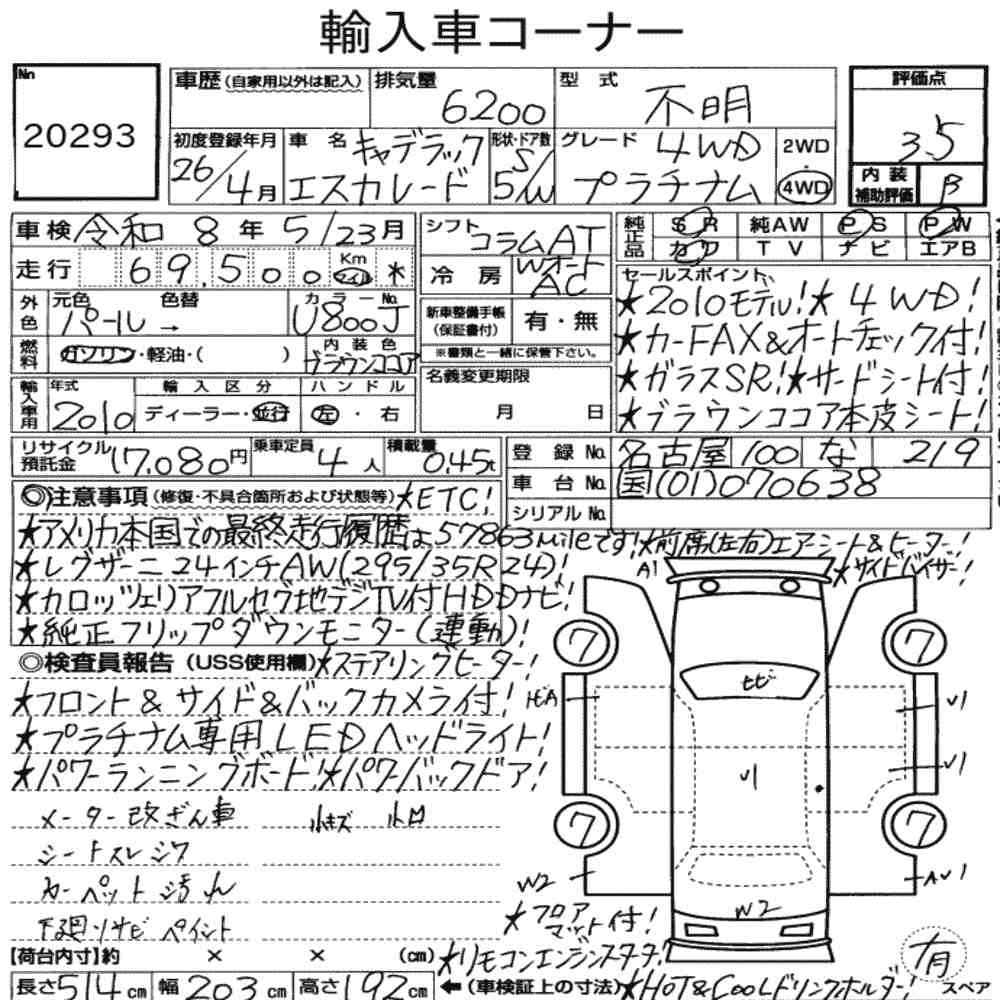 輸入車コーナー
No
20293
車歴 (自家用以外は記入)
排気量
6200
型式
不明
評価点
3.5
初度登録年月
26/4月
車名
キャデラック
エスカレード
形状・ドア数
S/
5/W
グレード
4WD
プラチナム
2WD
4WD
内装
補助評価
B
車検 令和 8 年 5/23 月
走行 69,500 Km マイル *
シフト
コラムAT
冷房
Wオート
AC
純正品
SR 純AW PS PW
カワ TV ナビ エアB
外色
元色 色替
パール →
カラーNo.
U800J
燃料
ガソリン・軽油・( )
内装色
ブラウンココア
新車整備手帳
(保証書付)
有・無
※書類と一緒に保管下さい。
セールスポイント
★2010モデル!★4WD!
★カーFAX&オートチェック付!
★ガラスSR!★サードシート付!
★ブラウンココア本皮シート!
輸入車用
年式
2010
輸入区分
ディーラー・並行
ハンドル
左・右
名義変更期限
月 日
リサイクル
預託金
17,080円
乗車定員
4人
積載量
0.45t
登録No.
名古屋 100 な 219
車台No.
国(01)070638
シリアルNo.
◎注意事項(修復・不具合箇所および状態等)★ETC!
★アメリカ本国での最終走行履歴は57863mileです!★前席(左右)エアーシート&ヒーター!
★レグザーニ24インチAW(295/35R24)!
★サイドバイザー!
★カロッツェリアフルセグ地デジTV付HDDナビ!
★純正フリップダウンモニター(連動)!
◎検査員報告(USS使用欄)★ステアリングヒーター!
★フロント&サイド&バックカメラ付!
★プラチナム専用LEDヘッドライト!
★パワーランニングボード!★パワーバックドア!
メーター改ざん車 小キズ 小凹
シートスレ シワ
カーペット汚れ
下廻りサビ ペイント
A1
7
7
ヒビ
V1
V1
V1
7
7
W2
W2
AV1
★フロア
マット付!
【荷台内寸】約 × × (cm)
★リモコンエンジンスターター!
有
スペア
長さ514cm 幅203cm 高さ192cm ←(車検証上の寸法)
★HOT&COOLドリンクホルダー!